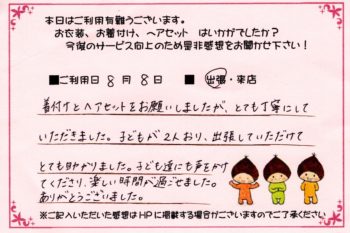 本日はご利用有難うございます。
お衣装、お着付け、ヘアセット はいかがでしたか？
今後のサービス向上のため是非感想をお聞かせ下さい！
■ご利用日 8月 8日 ■ 出張・来店
着付けとヘアセットをお願いしましたが、とても丁寧にして
いただきました。子どもが2人おり、出張していただけて
とても助かりました。子ども達にも声をかけ
てくださり、楽しい時間が過ごせました。
ありがとうございました。
※ご記入いただいた感想はHPに掲載する場合がございますのでご了承ください